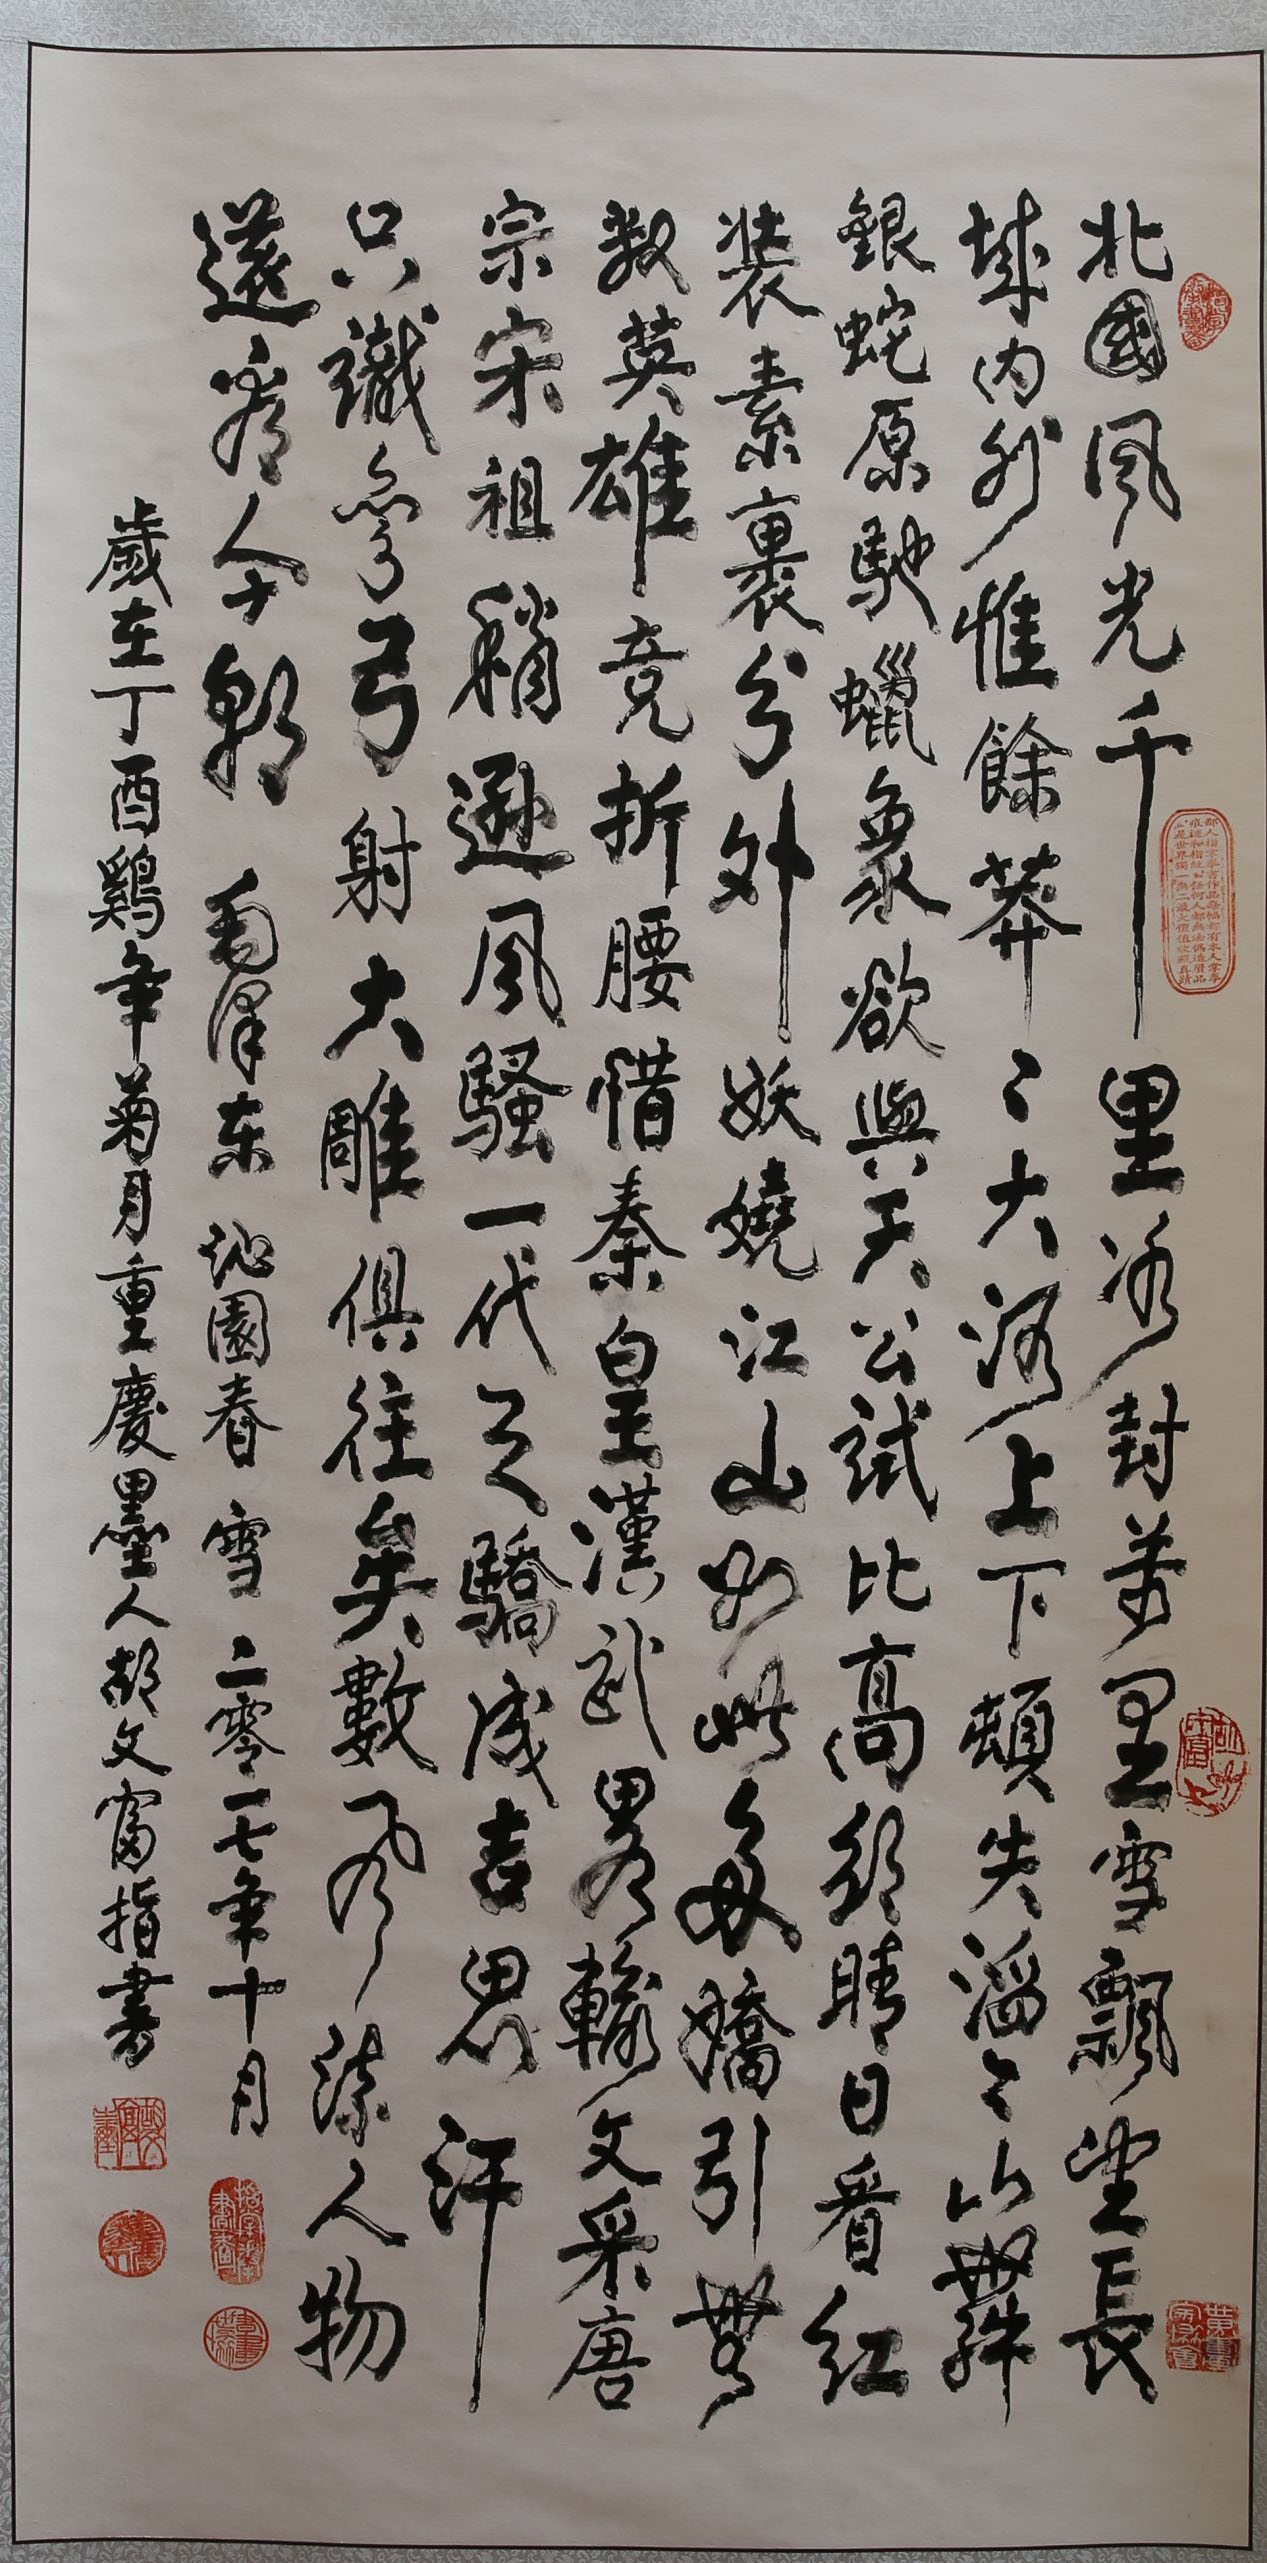 北國风光千里冰封萬里雪飄望長
城内外惟餘莽〻大河上下頓失滔〻山舞
銀蛇原馳蠟象欲與天公試比高須晴日看红
装素裹分外妖嬈江山如此多嬌引無
数英雄竞折腰惜秦皇漢武畧輸文采唐
宗宋祖稍遜风騷一代天驕成吉思汗
只識彎弓射大雕俱往矣數风流人物
還看今朝 毛泽东 沁園春 雪 二零一七年十月
歲在丁酉鷄年菊月重慶墨人胡文富指書